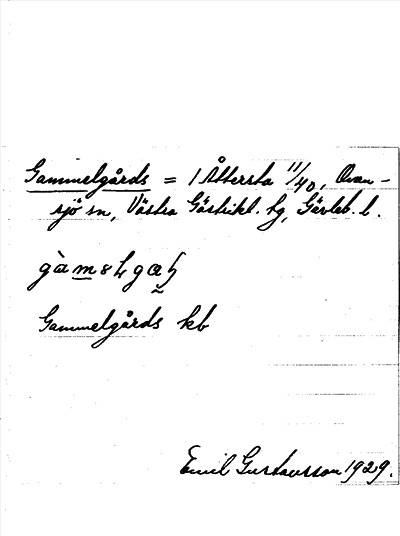 Gammelgårds = 1 Åttersta 11/40, Ovan-
sjö sn, Västra Gästrikl. hg, Gävleb. l.
Gammelgårds kb
Emil Gustavsson 1929.